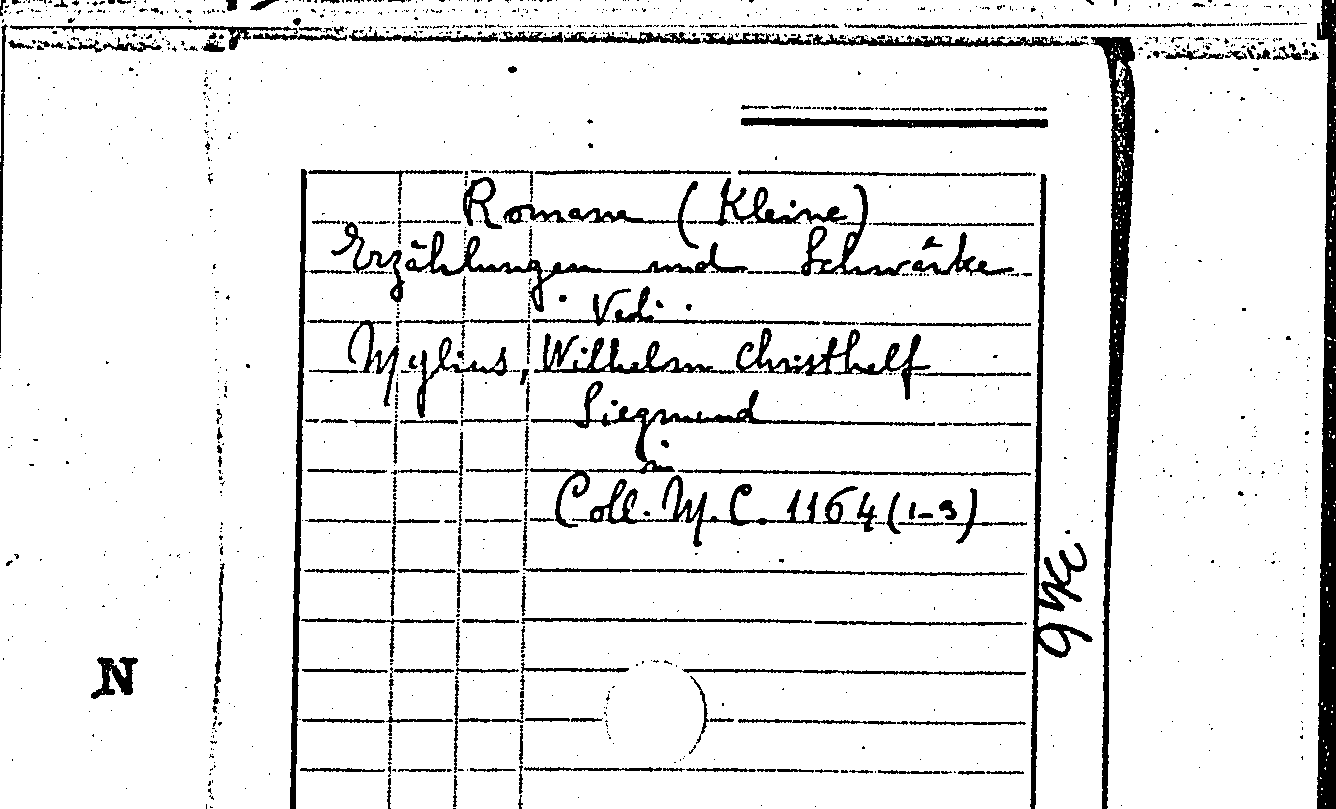 Romane (Kleine)
Erzählungen und Schwänke
. Vedi .
Mylius, Wilhelm Christhelf
Siegmund
in
Coll. M.C. 1164 (1-3)
N